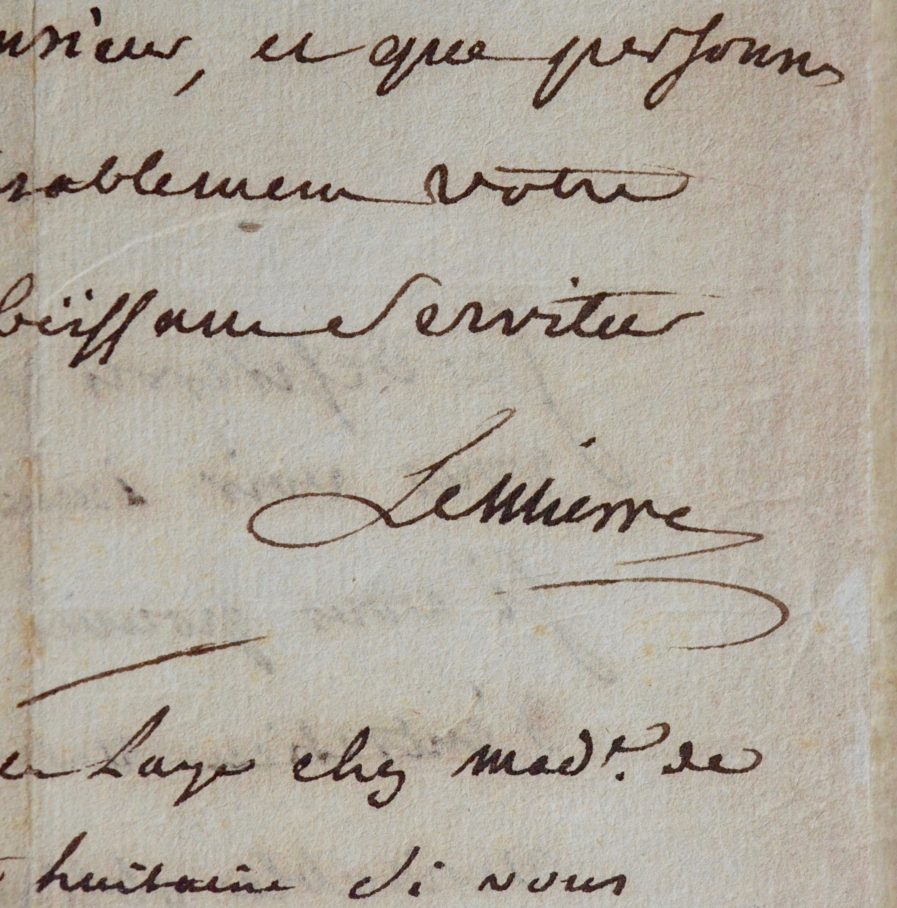 nsieur, et que personne
rablement votre
béissant Serviteur
Lemierre
en Laye chez mad.e de
huitaine Si vous